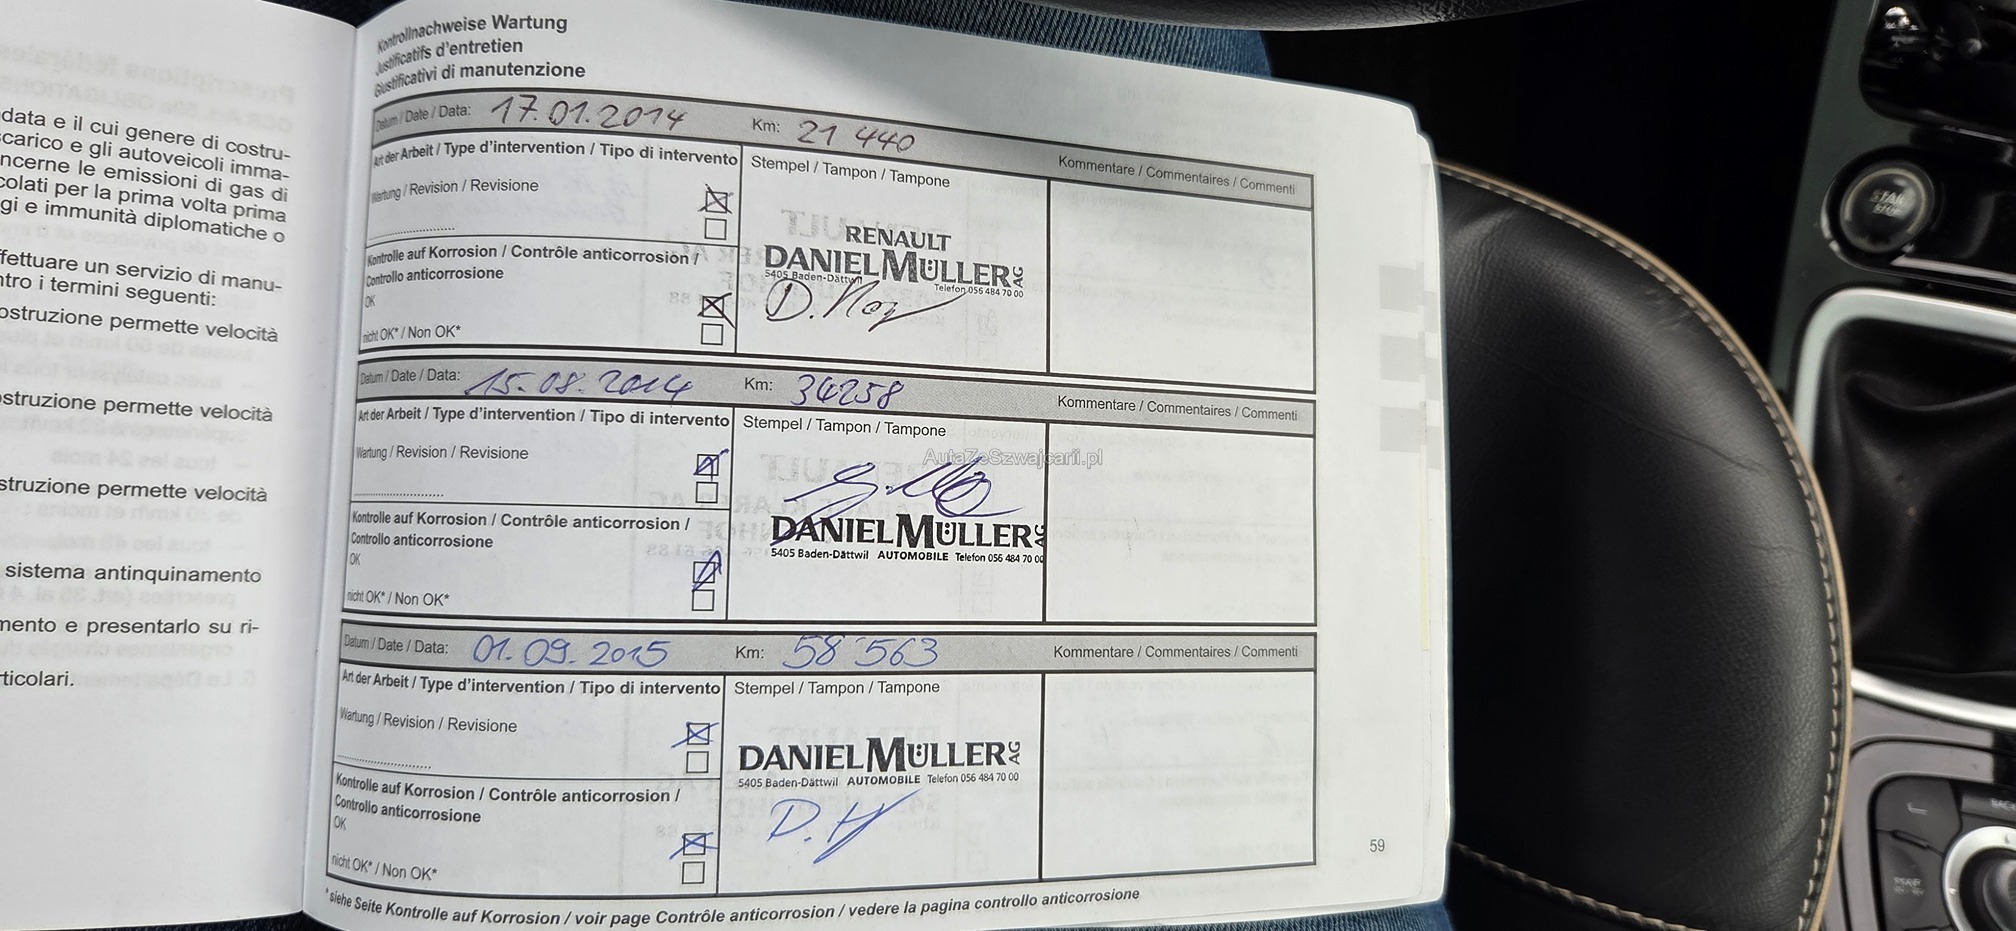 data e il cui genere di costru-
scarico e gli autoveicoli imma-
ncerne le emissioni di gas di
colati per la prima volta prima
gi e immunità diplomatiche o
ffettuare un servizio di manu-
ntro i termini seguenti:
ostruzione permette velocità
ostruzione permette velocità
struzione permette velocità
sistema antinquinamento
mento e presentarlo su ri-
rticolari.
Kontrollnachweise Wartung
Justificatifs d'entretien
Giustificativi di manutenzione
Datum / Date / Data: 17.01.2014 Km: 21 440 Kommentare / Commentaires / Commenti
Art der Arbeit / Type d'intervention / Tipo di intervento Stempel / Tampon / Tampone
Wartung / Revision / Revisione
RENAULT
DANIEL MÜLLER AG
5405 Baden-Dättwil
Telefon 056 484 70 00
Kontrolle auf Korrosion / Contrôle anticorrosion /
Controllo anticorrosione
OK
nicht OK* / Non OK*
Datum / Date / Data: 15.08.2014 Km: 34258 Kommentare / Commentaires / Commenti
Art der Arbeit / Type d'intervention / Tipo di intervento Stempel / Tampon / Tampone
Wartung / Revision / Revisione
AutaZeSzwajcarii.pl
DANIEL MÜLLER AG
5405 Baden-Dättwil AUTOMOBILE Telefon 056 484 70 00
Kontrolle auf Korrosion / Contrôle anticorrosion /
Controllo anticorrosione
OK
nicht OK* / Non OK*
Datum / Date / Data: 01.09.2015 Km: 58'563 Kommentare / Commentaires / Commenti
Art der Arbeit / Type d'intervention / Tipo di intervento Stempel / Tampon / Tampone
Wartung / Revision / Revisione
DANIEL MÜLLER AG
5405 Baden-Dättwil AUTOMOBILE Telefon 056 484 70 00
Kontrolle auf Korrosion / Contrôle anticorrosion /
Controllo anticorrosione
OK
nicht OK* / Non OK*
*siehe Seite Kontrolle auf Korrosion / voir page Contrôle anticorrosion / vedere la pagina controllo anticorrosione
59
START
STOP